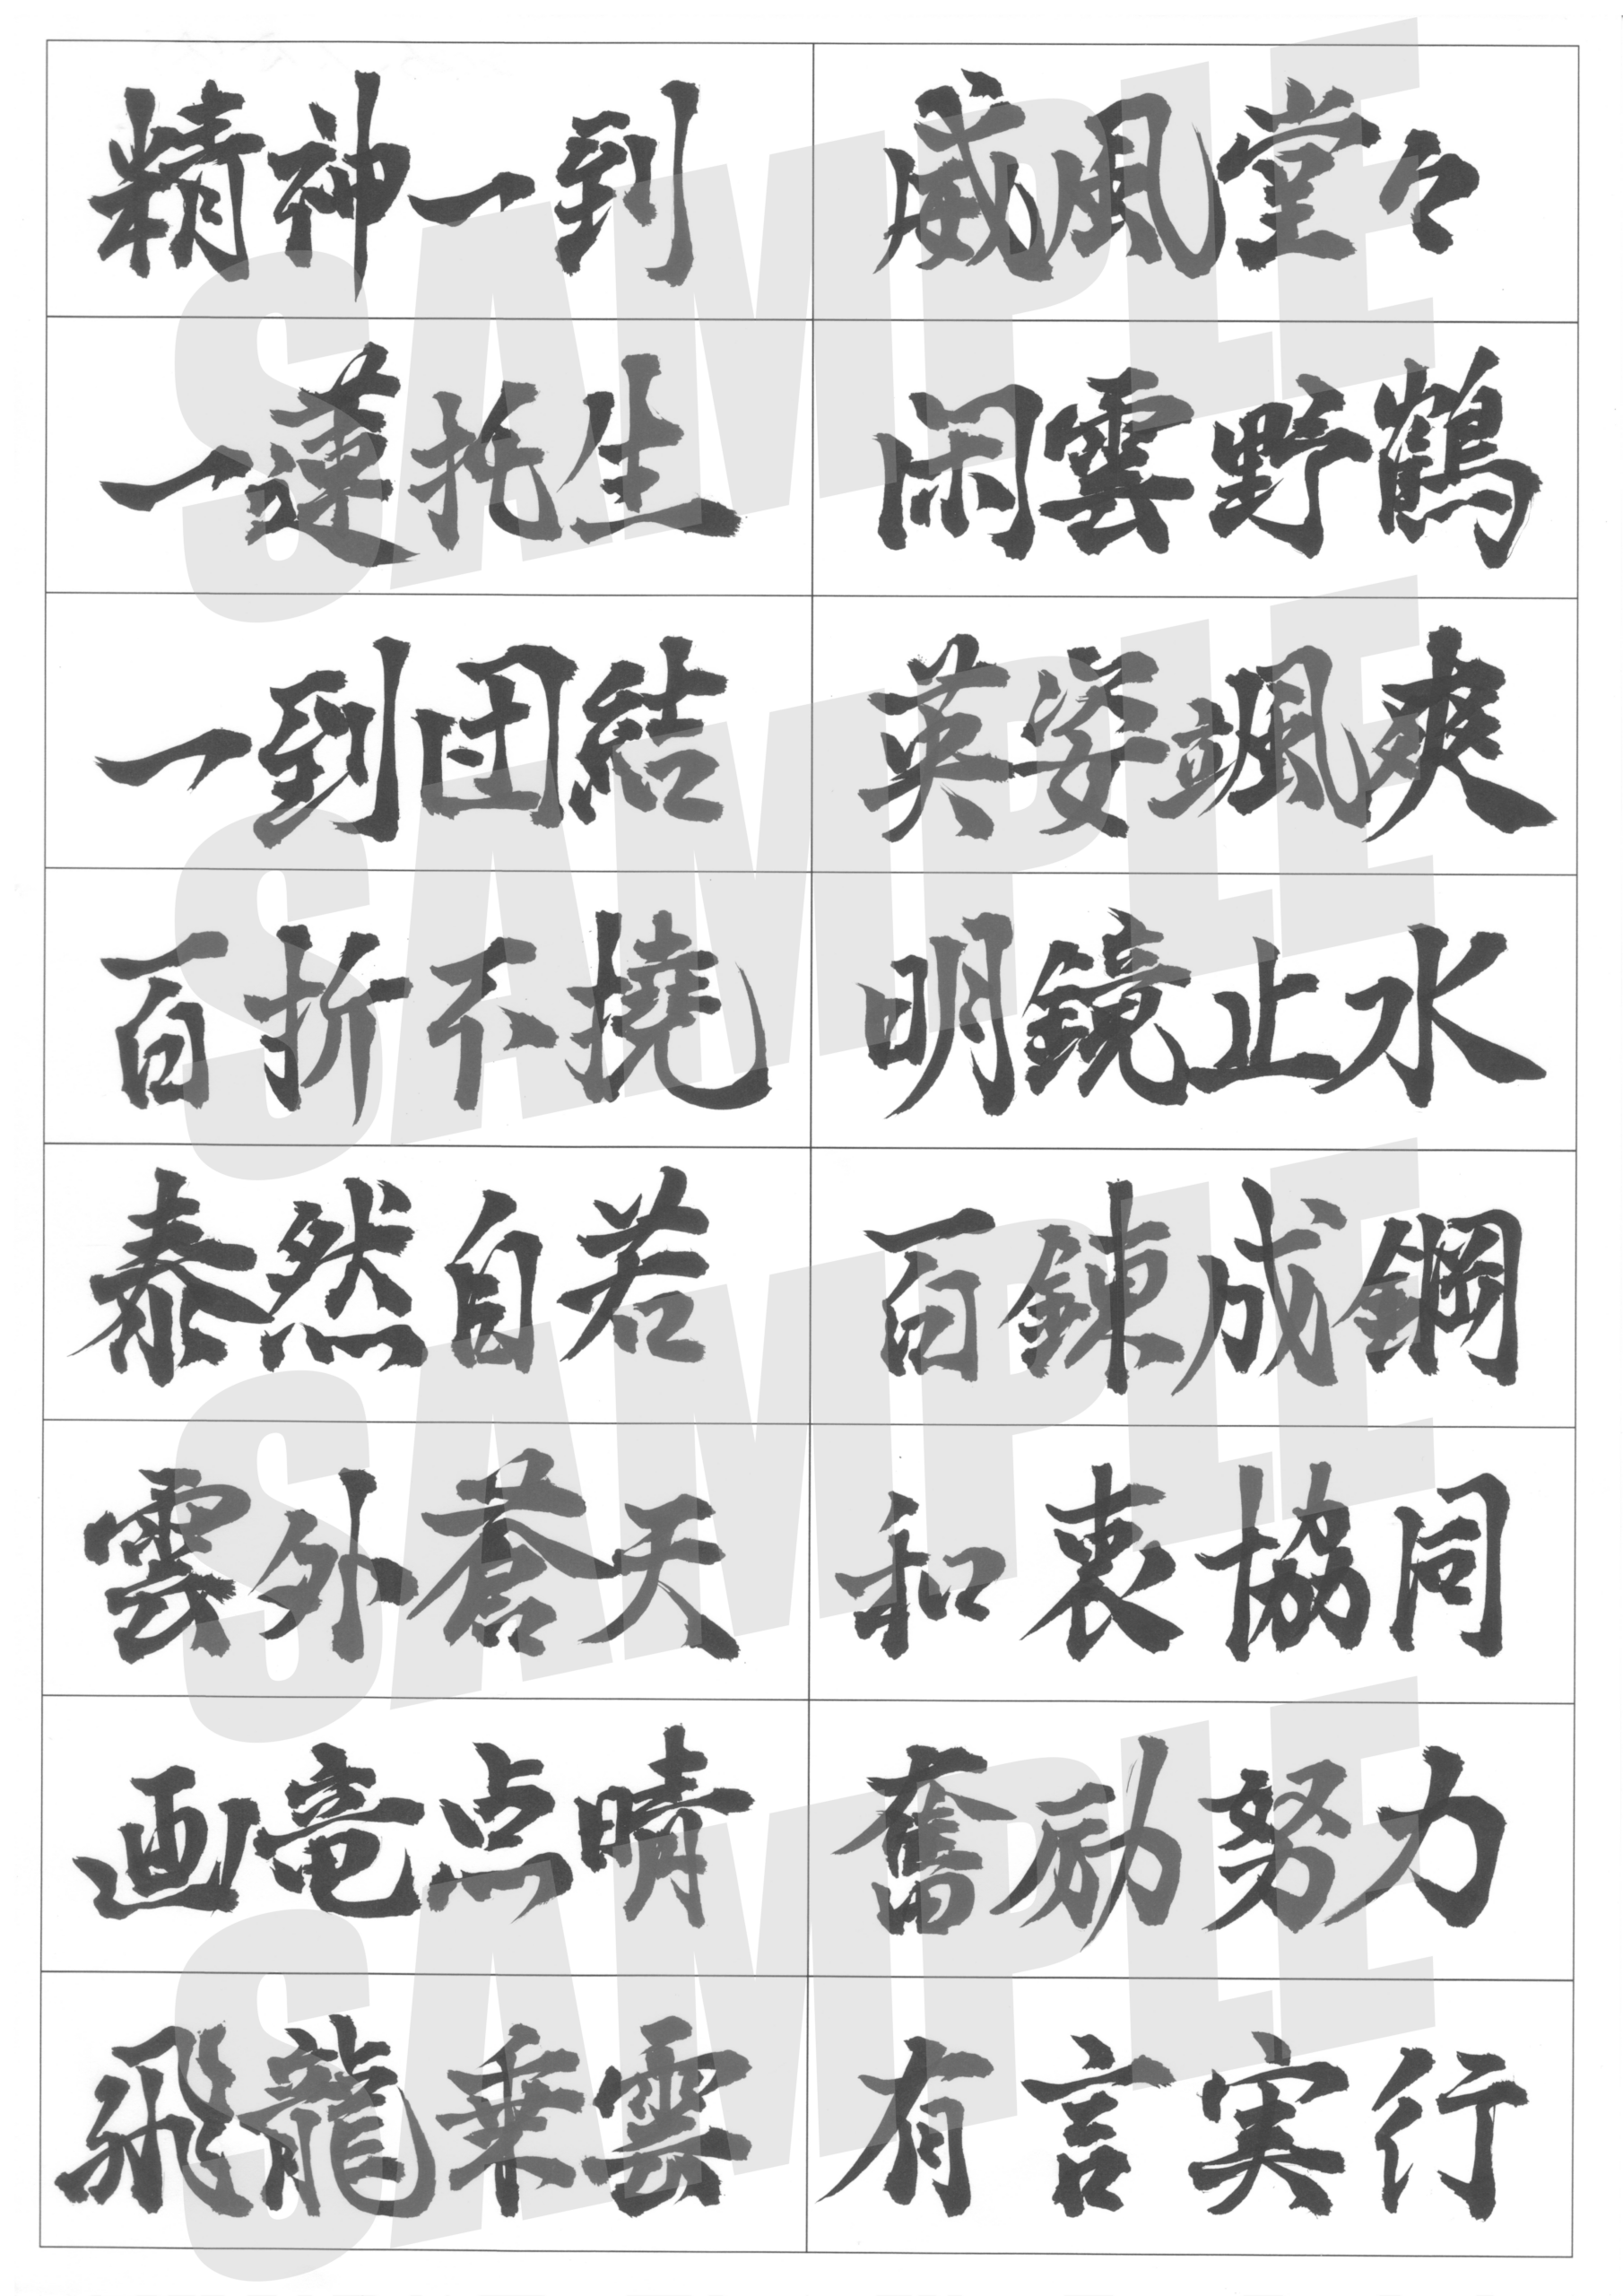 精神一到
威風堂々
一蓮托生
閑雲野鶴
一到団結
英姿颯爽
百折不撓
明鏡止水
泰然自若
百錬成鋼
雲外蒼天
和衷協同
画竜点晴
奮励努力
飛龍乗雲
有言実行
SAMPLE
SAMPLE
SAMPLE
SAMPLE